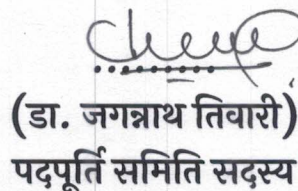 (डा. जगन्नाथ तिवारी)
पदपूर्ति समिति सदस्य